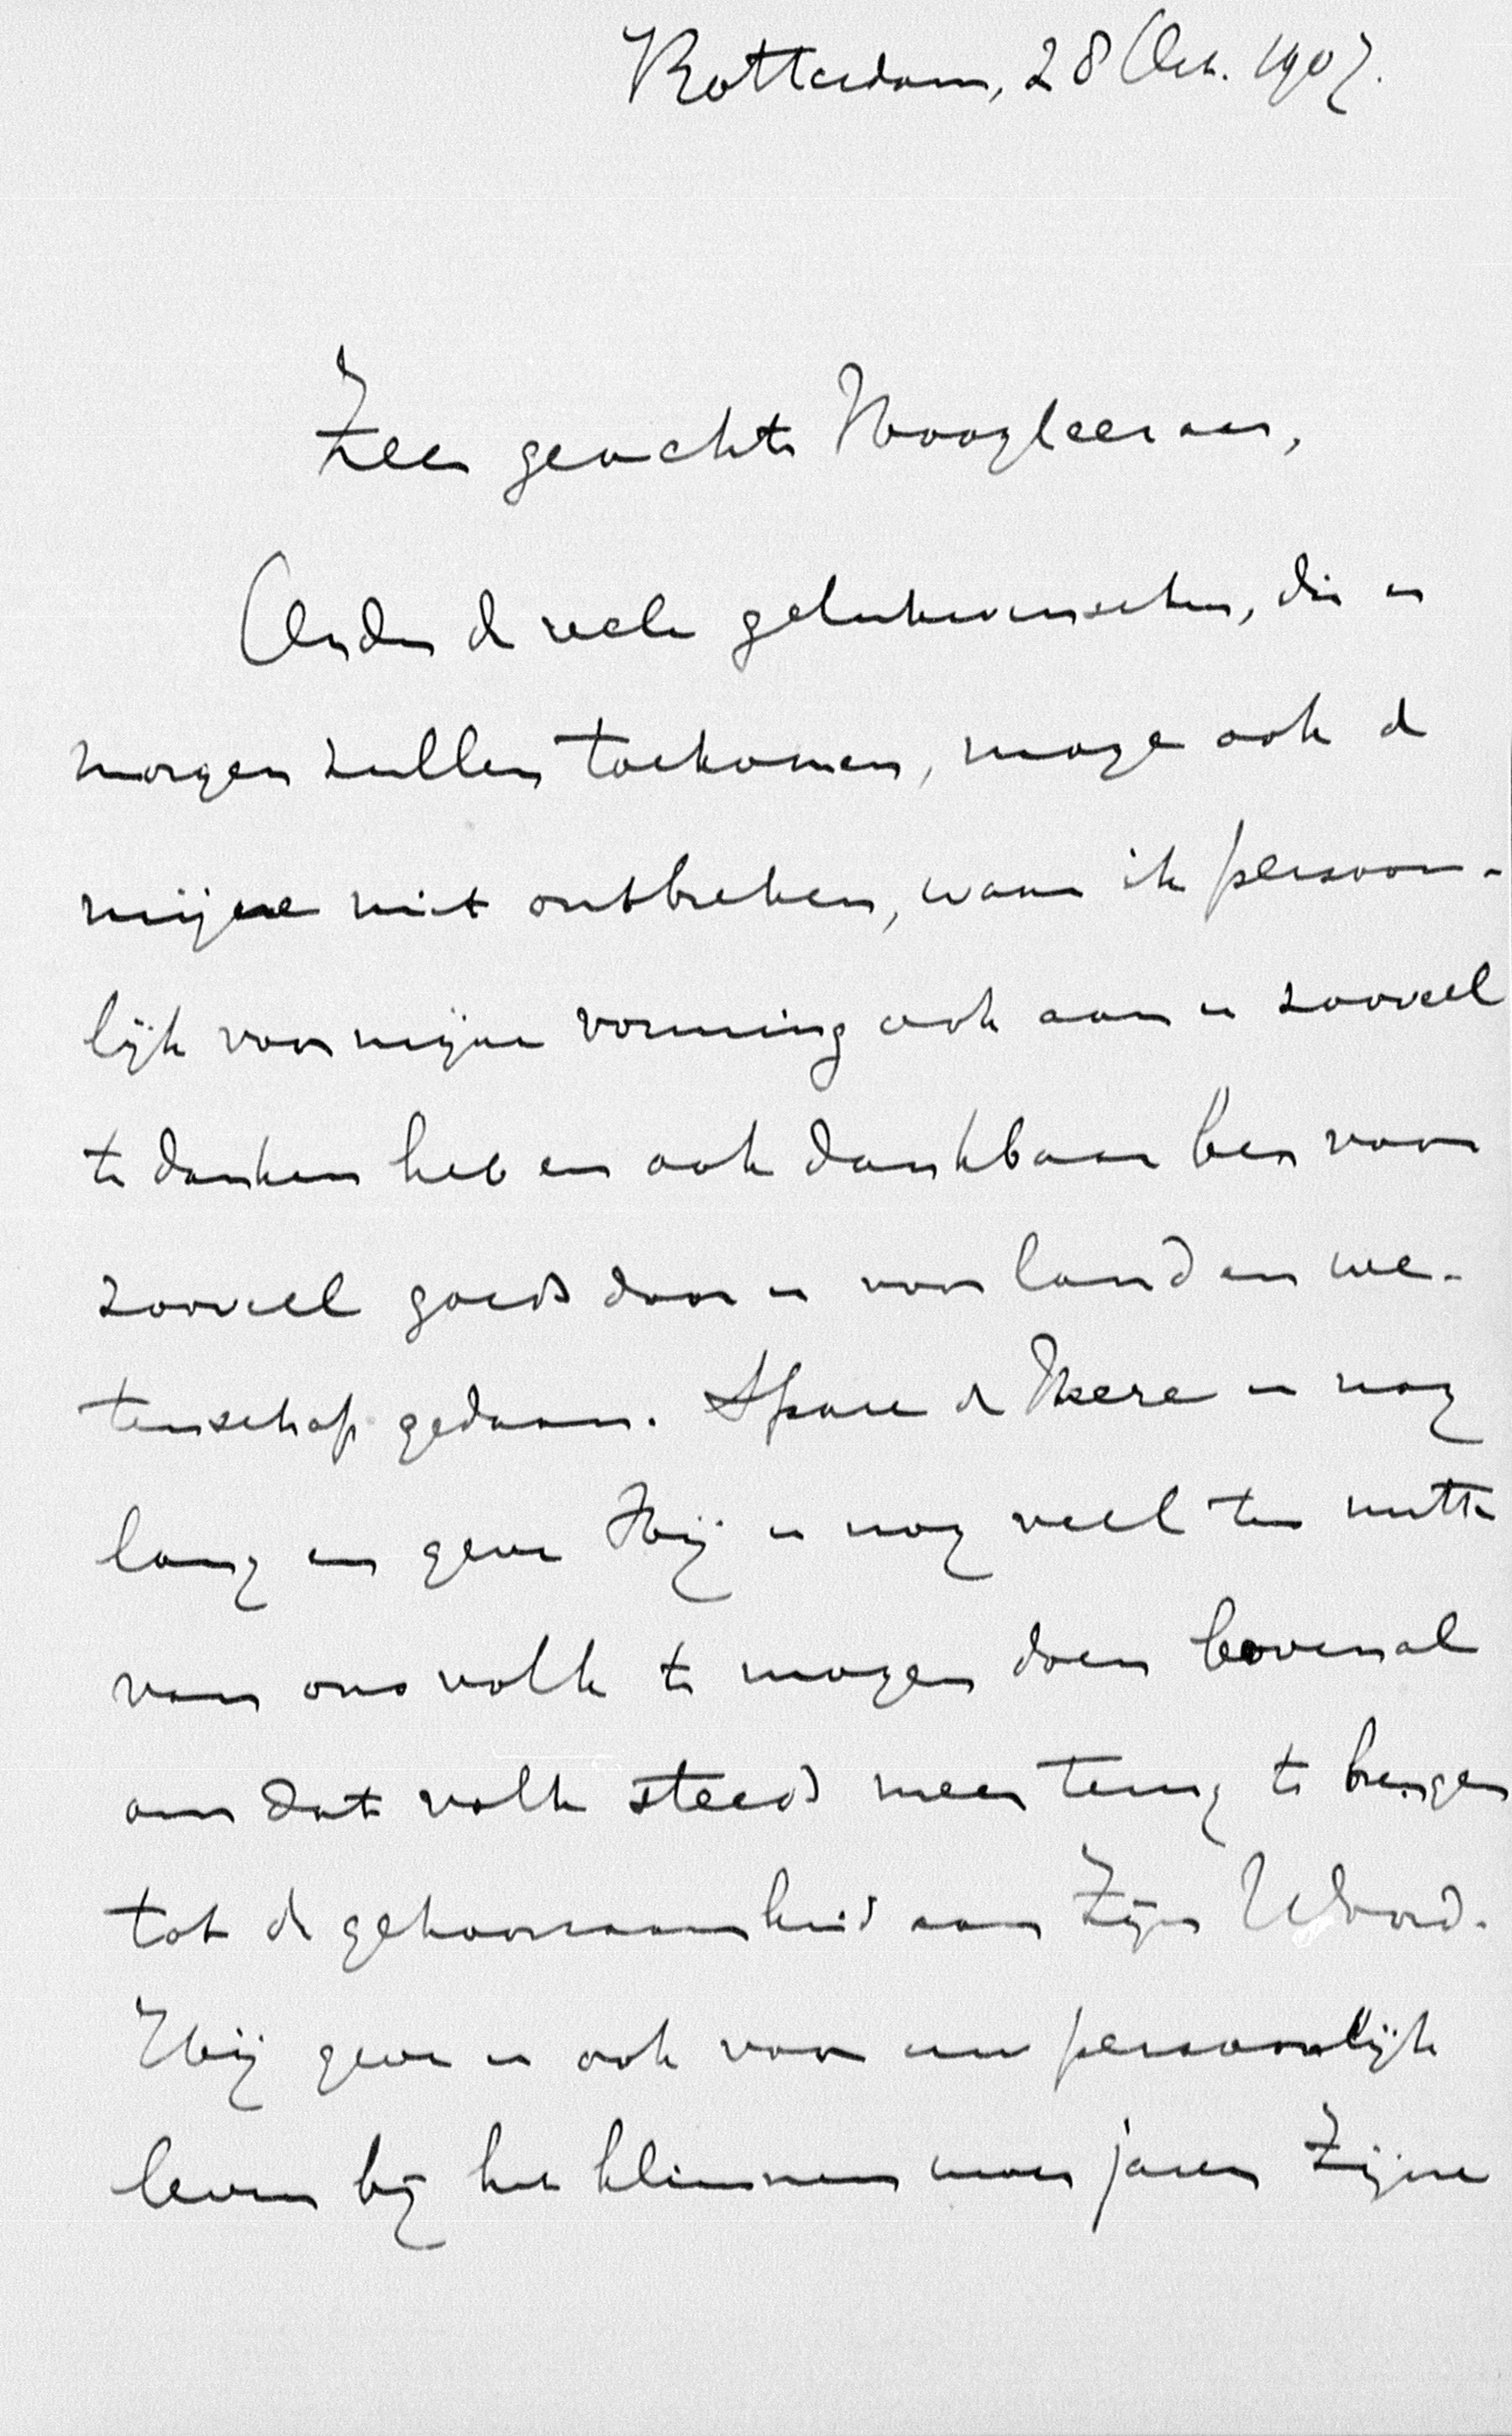 Rotterdam, 28 Oct. 1907.
Zeer geachte Hoogleeraar,
Onder de vele gelukwenschen, die u
morgen zullen toekomen, moge ook de
mijne niet ontbreken, waar ik persoon-
lijk voor mijne vorming ook aan u zooveel
te danken heb en ook dankbaar ben voor
zooveel goeds door u voor land en we-
tenschap gedaan. Spare de Heere u nog
lang en geve Hij u nog veel ten nutte
van ons volk te mogen doen bovenal
om dat volk steeds meer terug te brengen
tot de gehoorzaamheid aan Zijn Woord.
Hij geve u ook voor uw persoonlijk
leven bij het klimmen uwer jaren Zijne